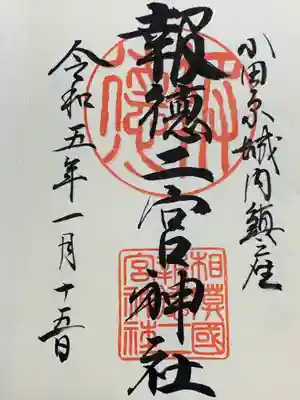 小田原城内鎮座
報徳二宮神社
令和五年一月十五日
相模國
報徳二
宮神社